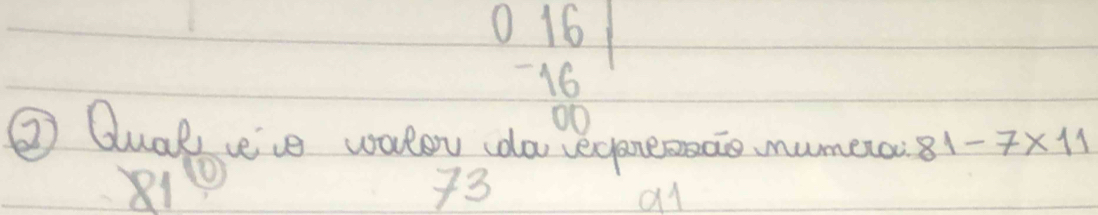 0 16
-16
00
② Qual é o valor da expressão numera: 81 - 7 x 11
81 73 91